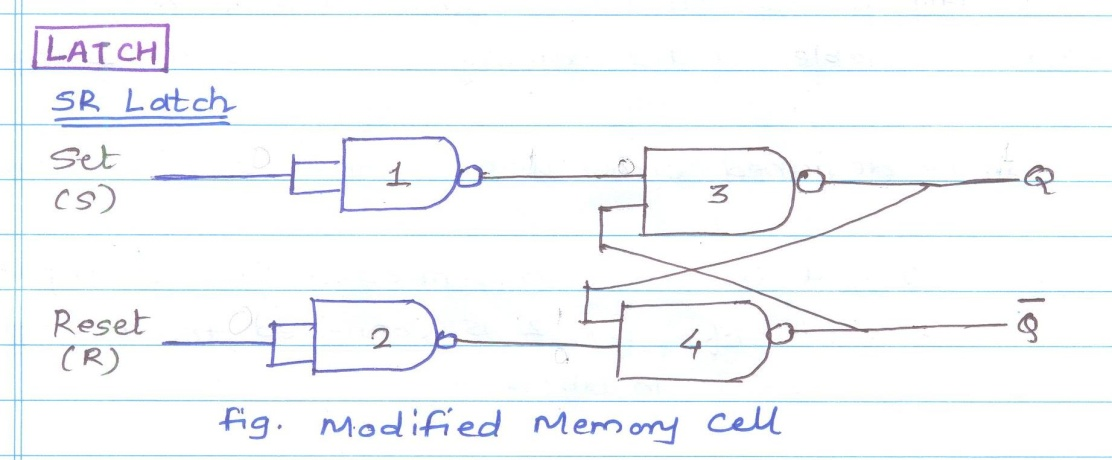 LATCH
SR Latch
Set
(S)
1
0
3
Q
Reset
(R)
2
4
Q̅
fig. Modified Memory cell